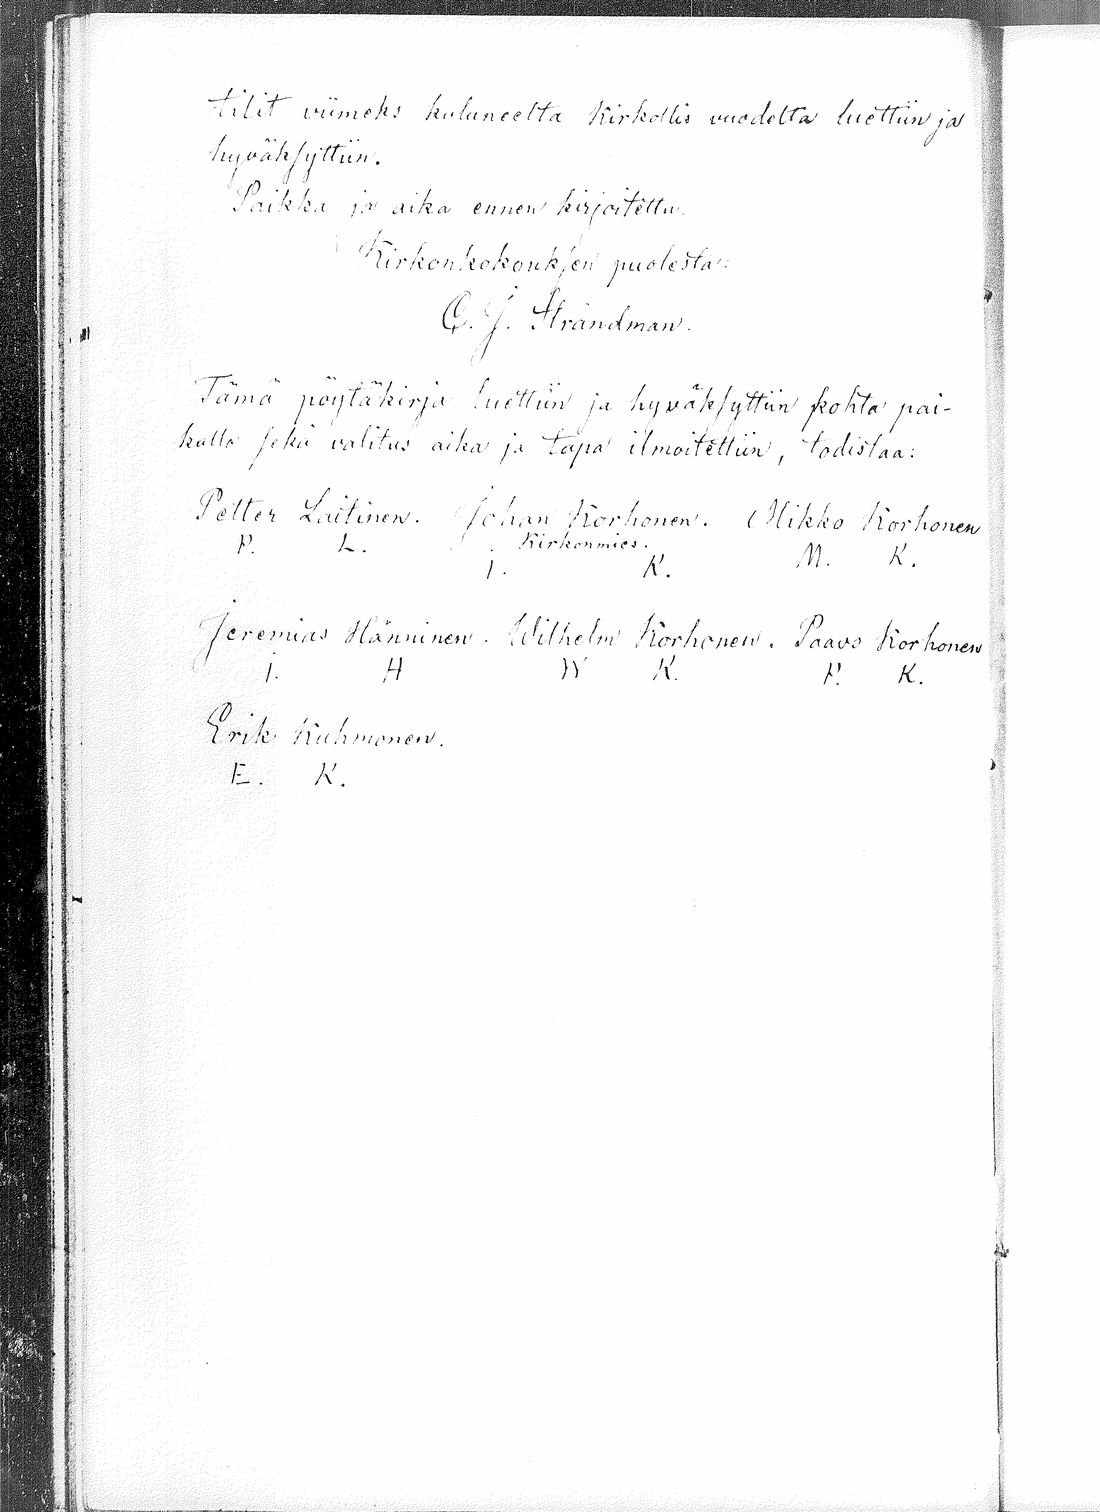 tilit viimeks kuluneelta Kirkollis vuodelta luettiin ja
hyväksyttiin.
Paikka ja aika ennen kirjoitettu.
Kirkonkokouksen puolesta:
C. J. Strandman.
Tämä pöytäkirja luettiin ja hyväksyttiin kohta pai-
kalla sekä valitus aika ja tapa ilmoitettiin, todistaa:
Petter Laitinen. Johan Korhonen. Mikko Korhonen
P. L. Kirkonmies. M. K.
I. K.
Jeremias Hänninen. Wilhelm Korhonen. Paavo Korhonen
I. H W K. P. K.
Erik Kuhmonen.
E. K.